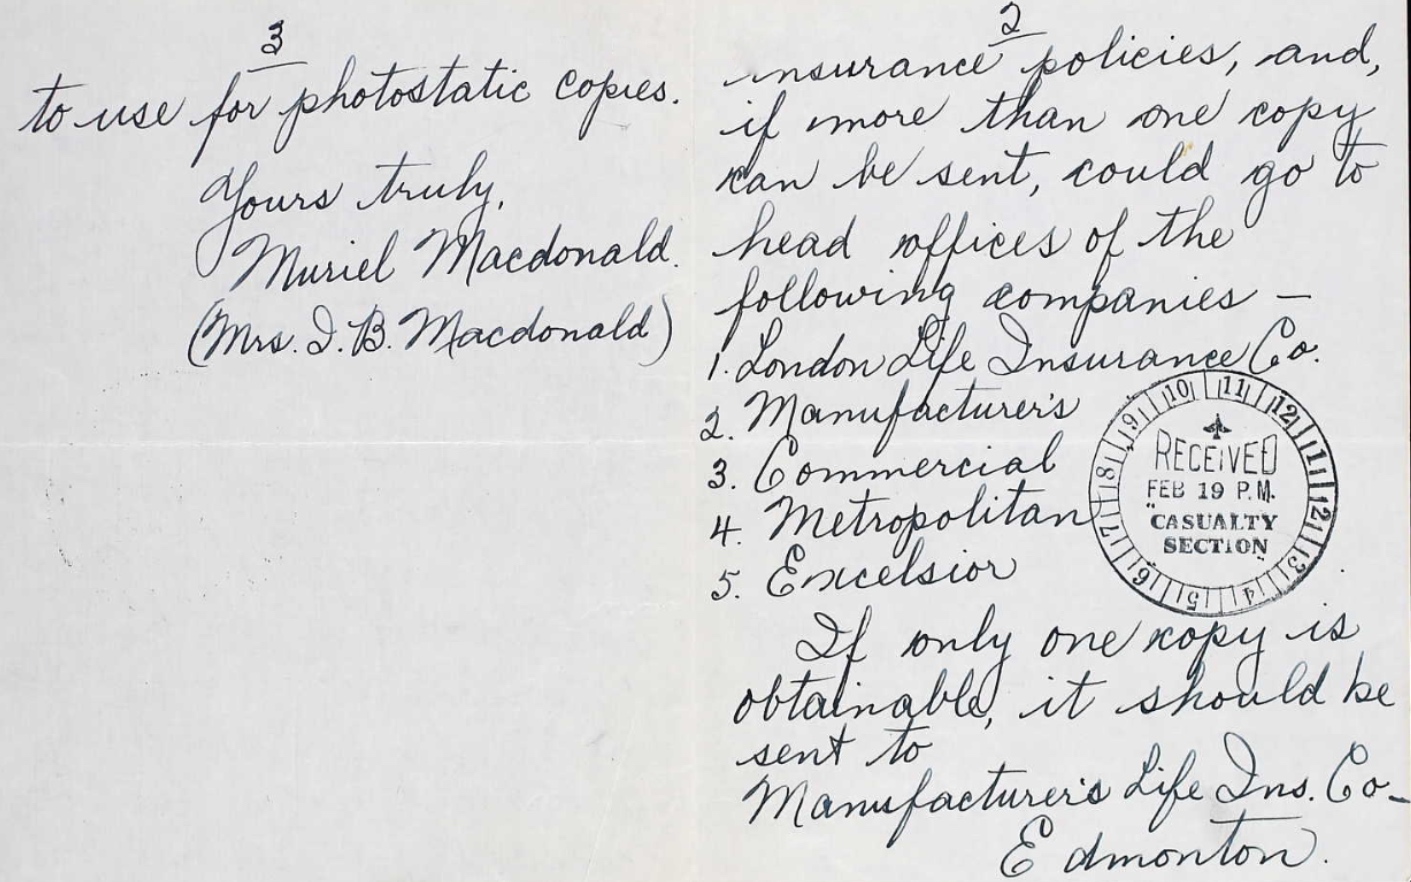 2
insurance policies, and,
if more than one copy
can be sent, could go to
head offices of the
following companies –
1. London Life Insurance Co.
2. Manufacturer's
3. Commercial
4. Metropolitan
5. Excelsior
10 11 12 1 2 3 4 5 6 7 8 9
RECEIVED
FEB 19 P.M.
"CASUALTY
SECTION"
If only one copy is
obtainable, it should be
sent to
Manufacturer's Life Ins. Co–
Edmonton.
3
to use for photostatic copies.
Yours truly,
Muriel Macdonald.
(Mrs. I. B. Macdonald)